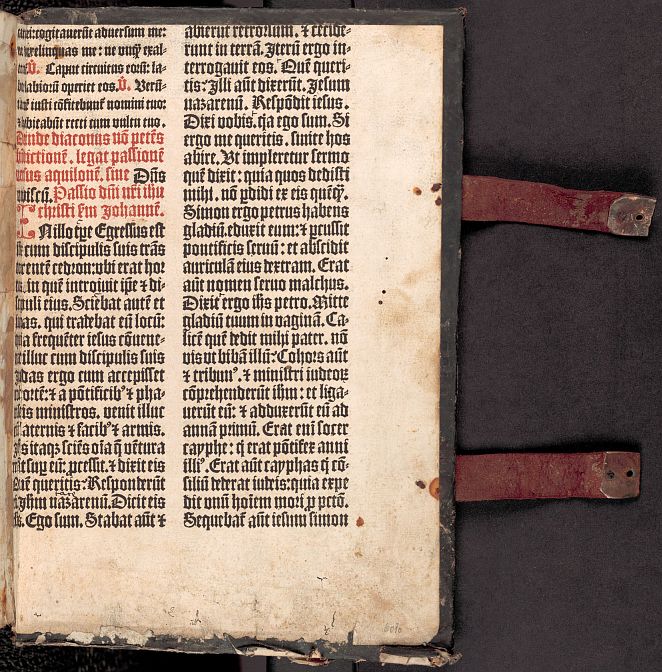 cogitauerūt aduersum me:
derelinquas me: ne unq̄ȝ exal-
ꝟ. Caput circuitus eorū: la-
labiorū operiet eos. ꝟ. Verū-
iusti cōfitebunt̄ nomini tuo:
habitabūt recti cum vultu tuo.
Deinde diaconus nō petēs
bn̄dictionē. legat passionē
versus aquilonē. sine Dn̄s
vobiscū. Passio dn̄i nr̄i ihu
christi scd̄m Johannē.
IN illo tp̄e Egressus est
cum discipulis suis trās
torrentē cedron: vbi erat hor
in quē introiuit ip̄e ⁊ di-
scipuli eius. Sciebat autē et
iudas. qui tradebat eū locū:
quia frequēter iesus cōuene-
illuc cum discipulis suis
Judas ergo cum accepisset
cohortē: ⁊ a pōtificibꝰ ⁊ pha-
ministros. venit illuc
cū laternis ⁊ facibꝰ ⁊ armis.
itaqȝ sciēs oīa q̄ vētura
erāt sup̄ eū: p̄cessit. ⁊ dixit eis
Quē queritis: Responderūt
ei. ihm̄ nazarenū. Dicit eis
Ego sum. Stabat aūt ⁊
abierūt retrorsum. ⁊ cecide-
runt in terrā. Iterū ergo in-
terrogauit eos. Quē queri-
tis: Illi aūt dixerūt. Jesum
nazarenū. Respōdit iesus.
Dixi vobis. qa ego sum. Si
ergo me queritis. sinite hos
abire. Vt impleretur sermo
quē dixit: quia quos dedisti
mihi. nō p̄didi ex eis quēq̄.
Simon ergo petrus habens
gladiū. eduxit eum: ⁊ p̄cussit
pontificis seruū: et abscidit
auriculā eius dextram. Erat
aūt nomen seruo malchus.
Dixit ergo ihs̄ petro. Mitte
gladiū tuum in vaginā. Ca-
licē quē dedit mihi pater. nō
vis vt bibā illū: Cohors aūt
⁊ tribunꝰ. ⁊ ministri iudeoꝝ
cōprehenderūt ihm̄: et liga-
uerūt eū: ⁊ adduxerūt eū ad
annā primū. Erat eni socer
cayphe: q̄ erat pōtifex anni
illiꝰ. Erat aūt cayphas q̄ cō-
siliū dederat iudeis: quia expe
dit vnū hoīem mori p̄ pp̄lō.
Sequebat̄ aūt iesum simon